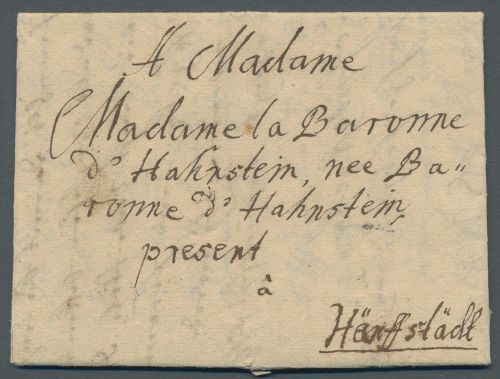 A Madame
Madame la Baronne
d' Hahnstein, nee Ba„
ronne d' Hahnstein,
present
à